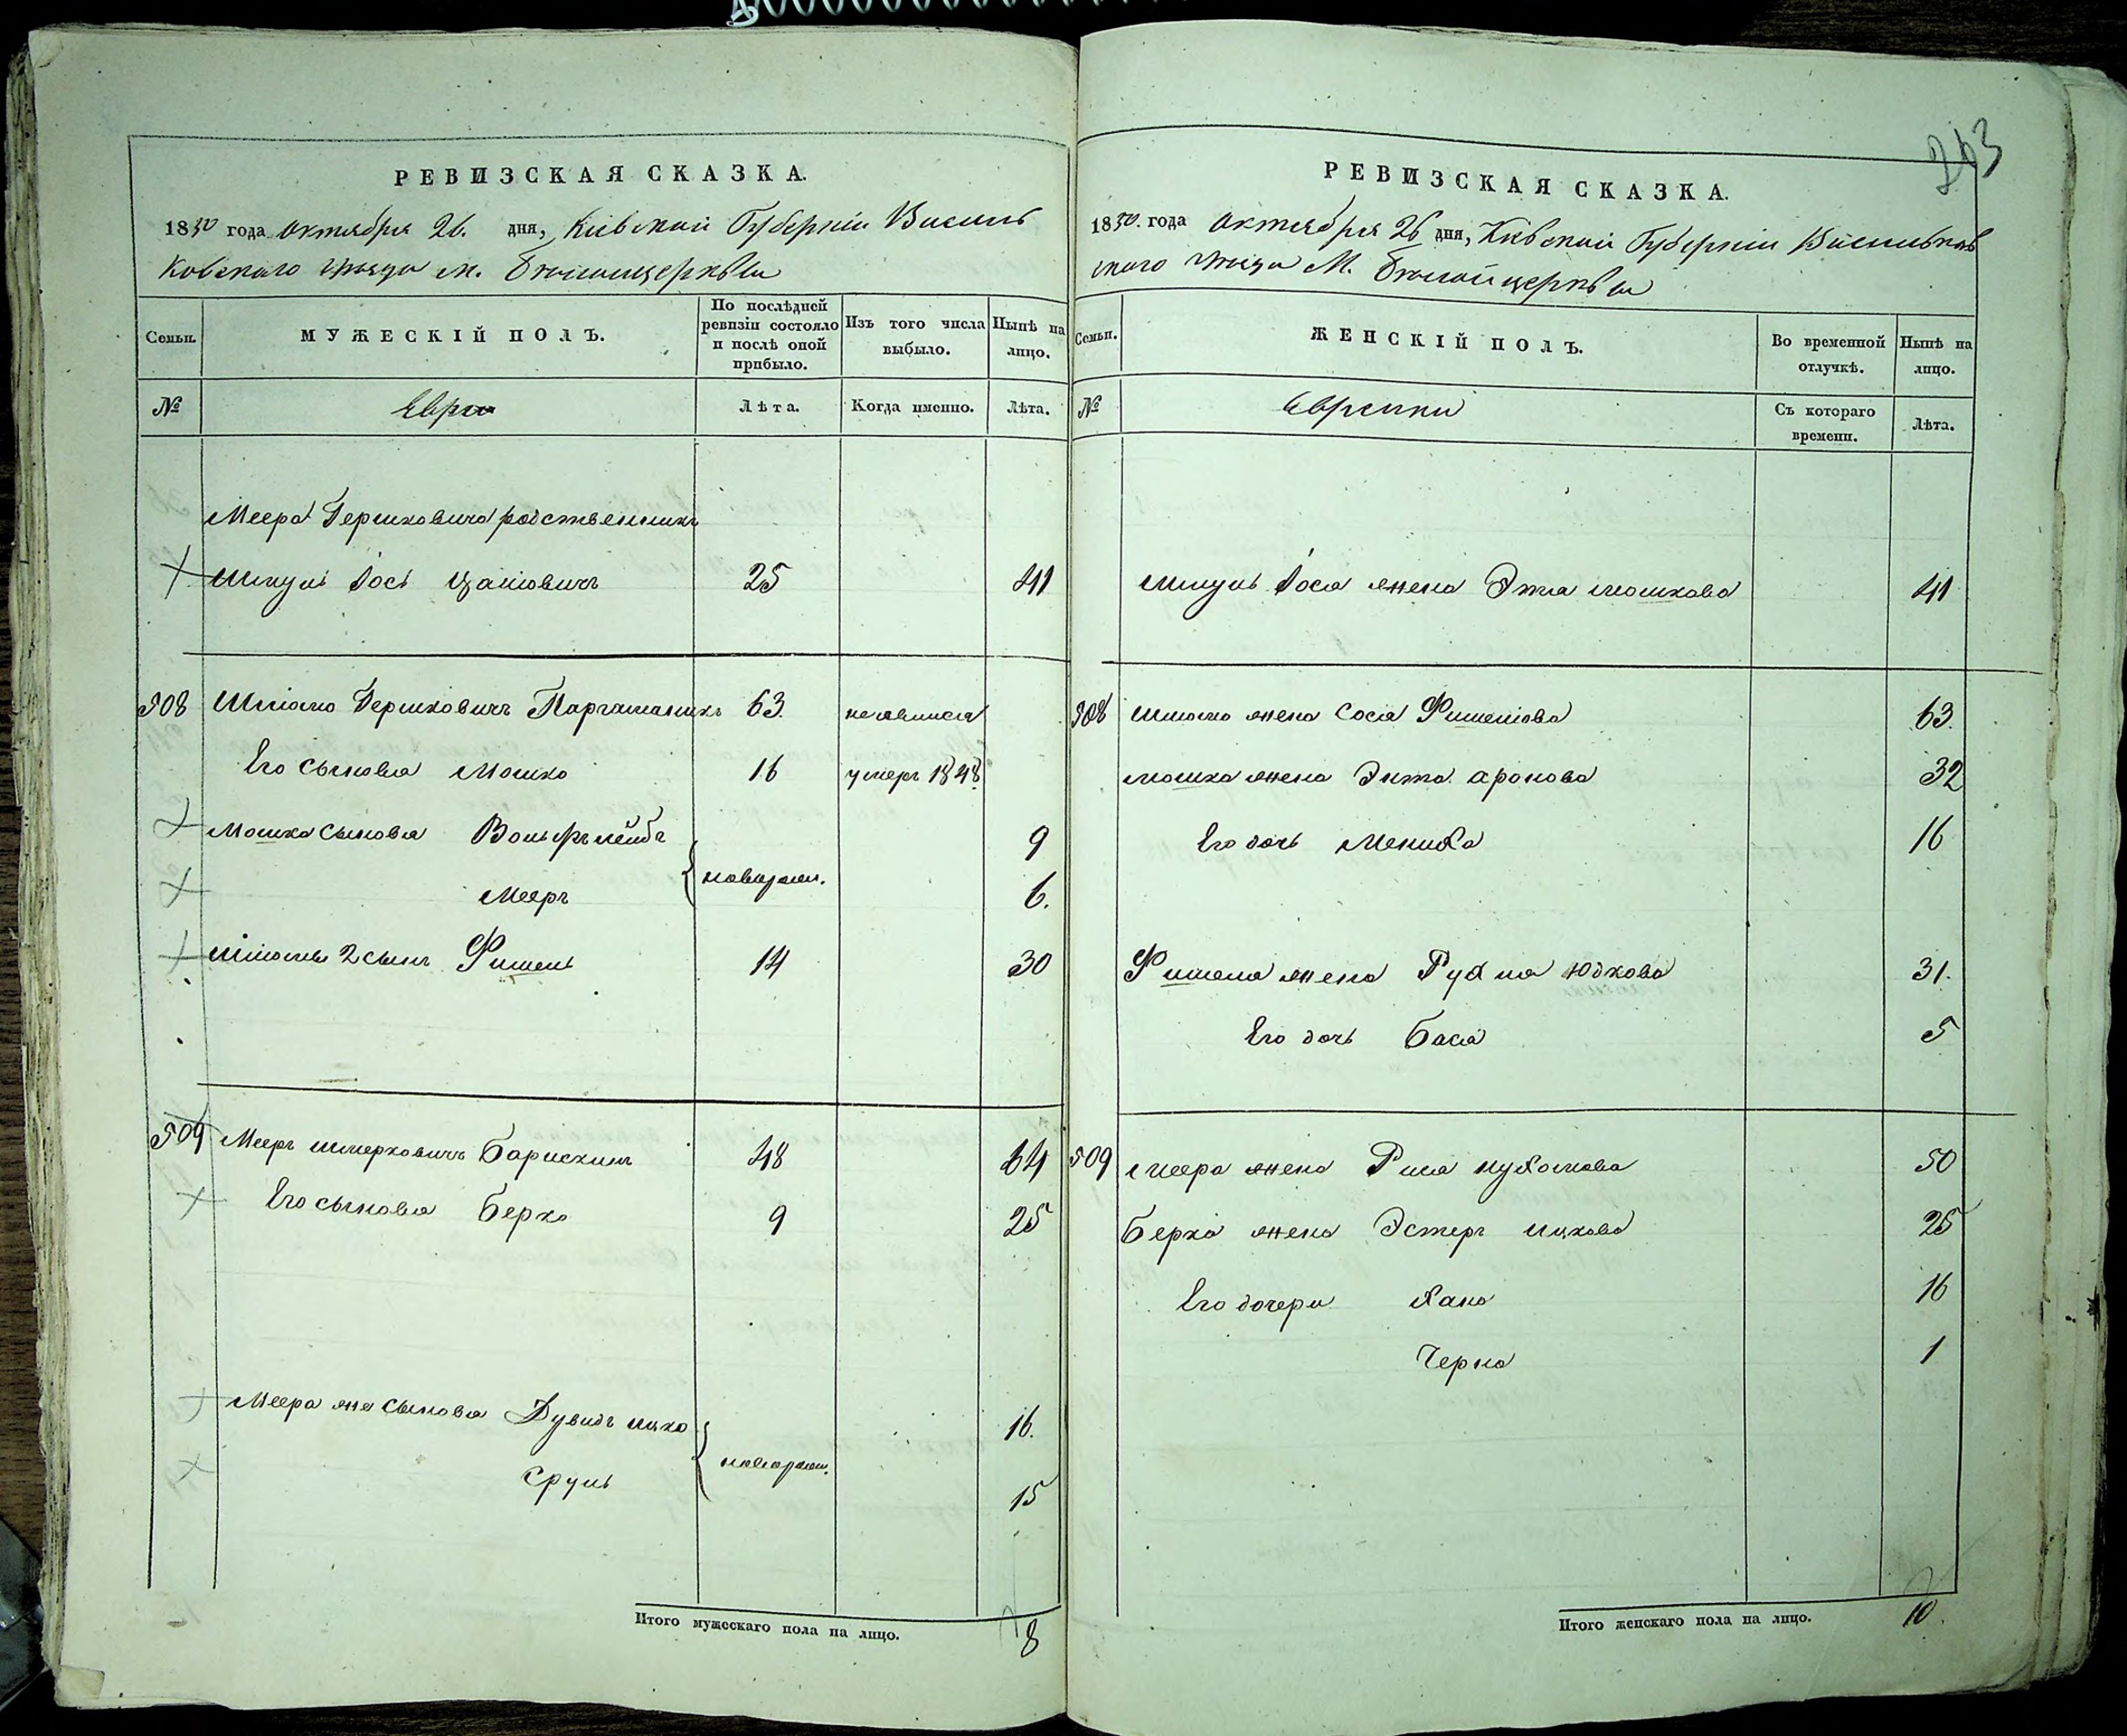 РЕВИЗСКАЯ СКАЗКА.
1850 года октября 26. дня, Кіевской Губерніи Василь
ковскаго уезда м. Белойцеркви
Семьи.
МУЖЕСКІЙ ПОЛЪ.
По послѣдней
ревизіи состояло
и послѣ оной
прибыло.
Изъ того числа
выбыло.
Нынѣ на
лицо.
№
Евреи
Лѣта.
Когда именно.
Лѣта.
Меера Гершковича родственникъ
Шмуль Іось 25 41
508 Шліома Гершковичъ 63. неявился
Его сыновья Мошко 16 умеръ 1848.
Мошка сыновья Вольфъ Лейбъ 9
новорожд.
Мееръ 6.
Шліомы 2 сынъ Фишель 14 30
509 Мееръ Шмерковичъ Барискинъ 48 64
Его сыновья Берко 9 25
Меера же сыновья Дувидъ Ицко 16.
новорожд.
Сруль 15
Итого мужескаго пола на лицо. 8
263
РЕВИЗСКАЯ СКАЗКА.
1850. года октября 26 дня, Кіевской Губерніи Васильков
скаго уезда М. Белойцеркви
Семьи.
ЖЕНСКІЙ ПОЛЪ.
Во временной
отлучкѣ.
Нынѣ на
лицо.
№
Еврейки
Съ котораго
времени.
Лѣта.
Шмуль Іося жена Этля Мошкова 41
508 Шліома жена Сося Фишелова 63.
Мошка жена Энта Аронова 32
Его дочь Мениха 16
Фишеля жена Рухля Юдкова 31.
Его дочь Бася 5
509 Меера жена Нухомова 50
Берка жена Эстеръ Ицкова 25
Его дочери Хана 16
Черна 1
Итого женскаго пола на лицо. 10.